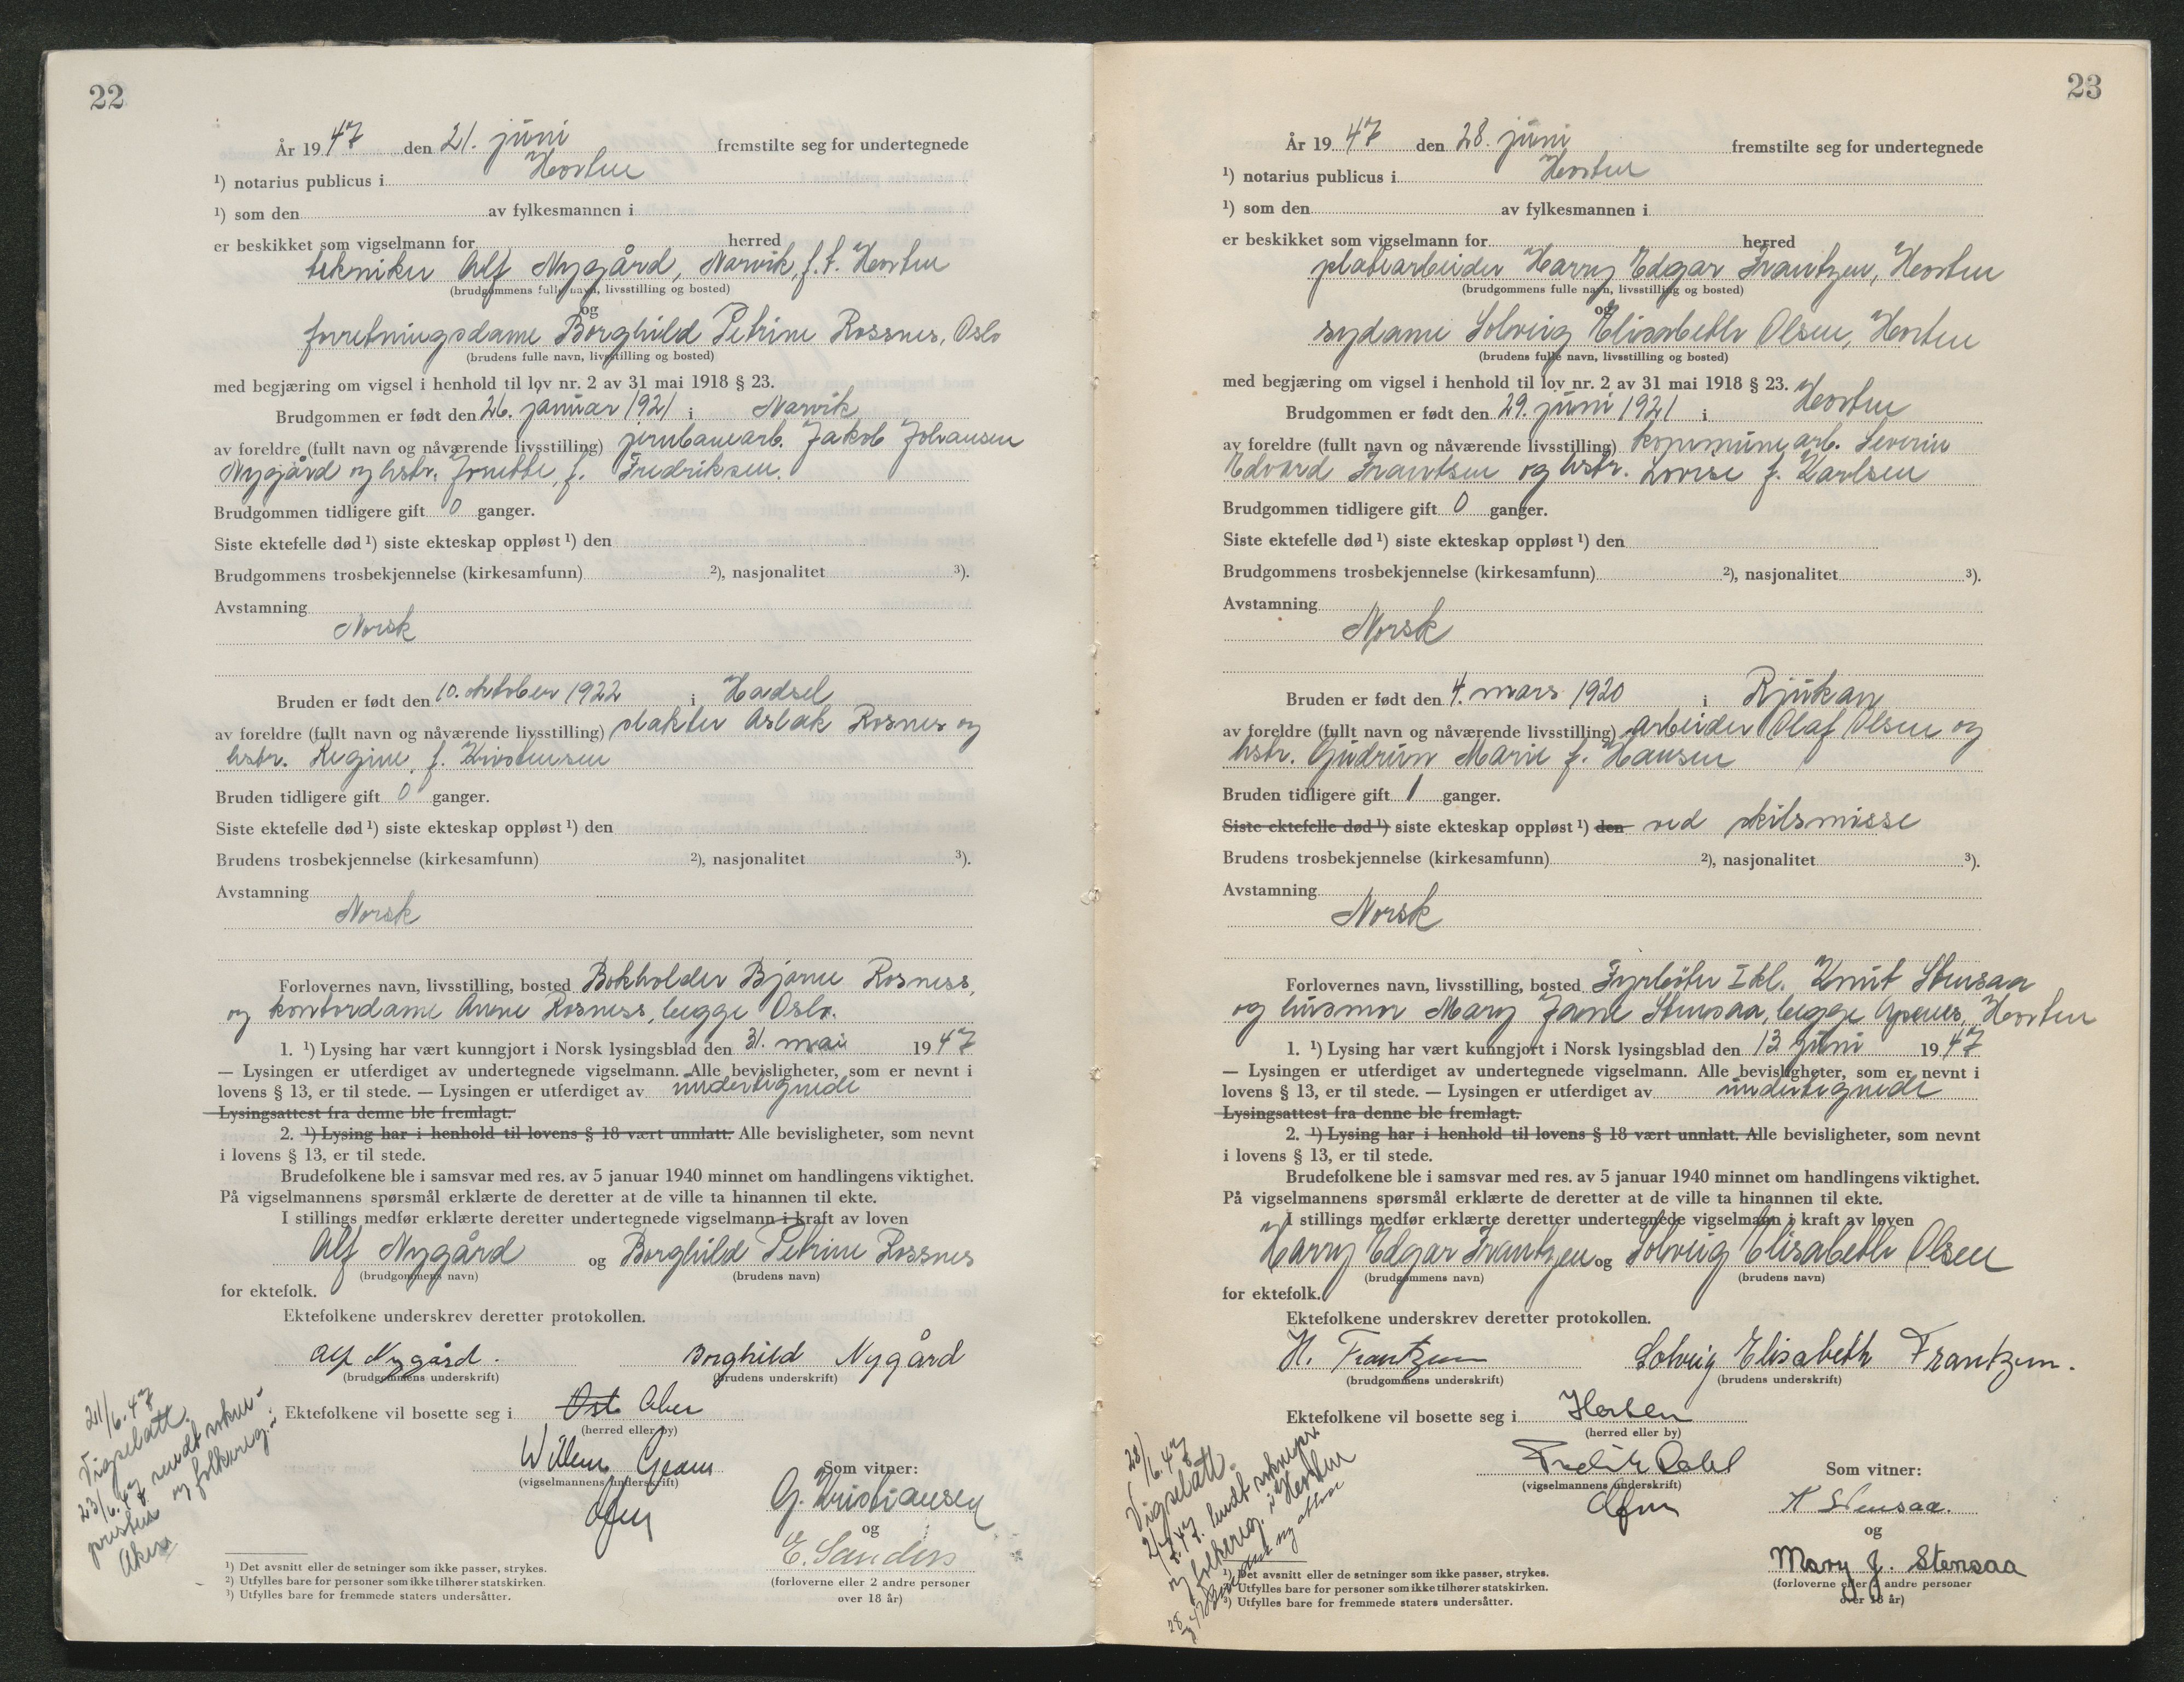 22
År 1947 den 21. juni fremstilte seg for undertegnede
¹) notarius publicus i Horten
¹) som den av fylkesmannen i
er beskikket som vigselmann for herred
tekniker Alf Nygård, Narvik, f.t. Horten
(brudgommens fulle navn, livsstilling og bosted)
og
forretningsdame Borghild Petrine Rossnes, Oslo
(brudens fulle navn, livsstilling og bosted)
med begjæring om vigsel i henhold til lov nr. 2 av 31 mai 1918 § 23.
Brudgommen er født den 26. januar 1921 i Narvik
av foreldre (fullt navn og nåværende livsstilling) jernbanearb. Jakob Johansen
Nygård og hstr. Jonette, f. Fredriksen.
Brudgommen tidligere gift 0 ganger.
Siste ektefelle død ¹) siste ekteskap oppløst ¹) den
Brudgommens trosbekjennelse (kirkesamfunn) ²), nasjonalitet ³).
Avstamning
Norsk
Bruden er født den 10. oktober 1922 i Hadsel
av foreldre (fullt navn og nåværende livsstilling) slakter Aslak Rosnes og
hstr. Regine, f. Kristensen
Bruden tidligere gift 0 ganger.
Siste ektefelle død ¹) siste ekteskap oppløst ¹) den
Brudens trosbekjennelse (kirkesamfunn) ²), nasjonalitet ³).
Avstamning
Norsk
Forlovernes navn, livsstilling, bosted Bokholder Bjarne Rosness,
og kontordame Anne Rosness, begge Oslo.
1. ¹) Lysing har vært kunngjort i Norsk lysingsblad den 31. mai 1947
— Lysingen er utferdiget av undertegnede vigselmann. Alle bevisligheter, som er nevnt i
lovens § 13, er til stede. — Lysingen er utferdiget av undertegnede
Lysingsattest fra denne ble fremlagt.
2. ¹) Lysing har i henhold til lovens § 18 vært unnlatt. Alle bevisligheter, som nevnt
i lovens § 13, er til stede.
Brudefolkene ble i samsvar med res. av 5 januar 1940 minnet om handlingens viktighet.
På vigselmannens spørsmål erklærte de deretter at de ville ta hinannen til ekte.
I stillings medfør erklærte deretter undertegnede vigselmann i kraft av loven
Alf Nygård og Borghild Petrine Rossnes
(brudgommens navn) (brudens navn)
for ektefolk.
Ektefolkene underskrev deretter protokollen.
Alf Nygård. Borghild Nygård
(brudgommens underskrift) (brudens underskrift)
Ektefolkene vil bosette seg i Oslo Aker
(herred eller by)
(vigselmannens underskrift)
Som vitner:
G. Kristiansen
og
E. Sanders
(forloverne eller 2 andre personer
over 18 år)
21/6.47
Vigselatt.
23/6.47 sendt
og folkereg.
Aker
¹) Det avsnitt eller de setninger som ikke passer, strykes.
²) Utfylles bare for personer som ikke tilhører statskirken.
³) Utfylles bare for fremmede staters undersåtter.
23
År 1947 den 28. juni fremstilte seg for undertegnede
¹) notarius publicus i Horten
¹) som den av fylkesmannen i
er beskikket som vigselmann for herred
platearbeider Harry Edgar Frantzen, Horten
(brudgommens fulle navn, livsstilling og bosted)
og
sydame Solveig Elisabeth Olsen, Horten
(brudens fulle navn, livsstilling og bosted)
med begjæring om vigsel i henhold til lov nr. 2 av 31 mai 1918 § 23.
Brudgommen er født den 29. juni 1921 i Horten
av foreldre (fullt navn og nåværende livsstilling) kommunearb. Severin
Edvard Frantsen og hstr. Lovise f. Karlsen
Brudgommen tidligere gift 0 ganger.
Siste ektefelle død ¹) siste ekteskap oppløst ¹) den
Brudgommens trosbekjennelse (kirkesamfunn) ²), nasjonalitet ³).
Avstamning
Norsk
Bruden er født den 4. mars 1920 i Rjukan
av foreldre (fullt navn og nåværende livsstilling) arbeider Olaf Olsen og
hstr. Gudrun Marie f. Hansen
Bruden tidligere gift 1 ganger.
Siste ektefelle død ¹) siste ekteskap oppløst ¹) den ved skilsmisse
Brudens trosbekjennelse (kirkesamfunn) ²), nasjonalitet ³).
Avstamning
Norsk
Forlovernes navn, livsstilling, bosted Fyrbøter I kl. Knut Stensaa
og husmor Mary Jane Stensaa, begge Apenes, Horten
1. ¹) Lysing har vært kunngjort i Norsk lysingsblad den 13 juni 1947
— Lysingen er utferdiget av undertegnede vigselmann. Alle bevisligheter, som er nevnt i
lovens § 13, er til stede. — Lysingen er utferdiget av undertegnede
Lysingsattest fra denne ble fremlagt.
2. ¹) Lysing har i henhold til lovens § 18 vært unnlatt. Alle bevisligheter, som nevnt
i lovens § 13, er til stede.
Brudefolkene ble i samsvar med res. av 5 januar 1940 minnet om handlingens viktighet.
På vigselmannens spørsmål erklærte de deretter at de ville ta hinannen til ekte.
I stillings medfør erklærte deretter undertegnede vigselmann i kraft av loven
Harry Edgar Frantzen og Solveig Elisabeth Olsen
(brudgommens navn) (brudens navn)
for ektefolk.
Ektefolkene underskrev deretter protokollen.
H. Frantzen Solveig Elisabeth Frantzen.
(brudgommens underskrift) (brudens underskrift)
Ektefolkene vil bosette seg i Horten
(herred eller by)
Fredrik Dahl
(vigselmannens underskrift)
Som vitner:
K Stensaa.
og
Mary J. Stensaa
(forloverne eller 2 andre personer
over 18 år)
28/6.47
Vigselatt.
og folkereg. i Horten
¹) Det avsnitt eller de setninger som ikke passer, strykes.
²) Utfylles bare for personer som ikke tilhører statskirken.
³) Utfylles bare for fremmede staters undersåtter.